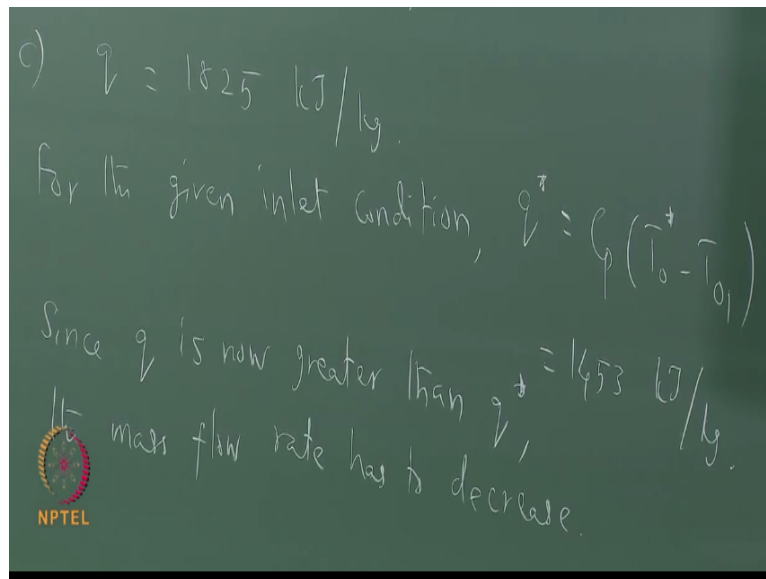 c) q = 1825 kJ/kg.
For the given inlet condition, q* = Cp (T0* - T01)
= 1453 kJ/kg.
Since q is now greater than q*,
the mass flow rate has to decrease.
NPTEL